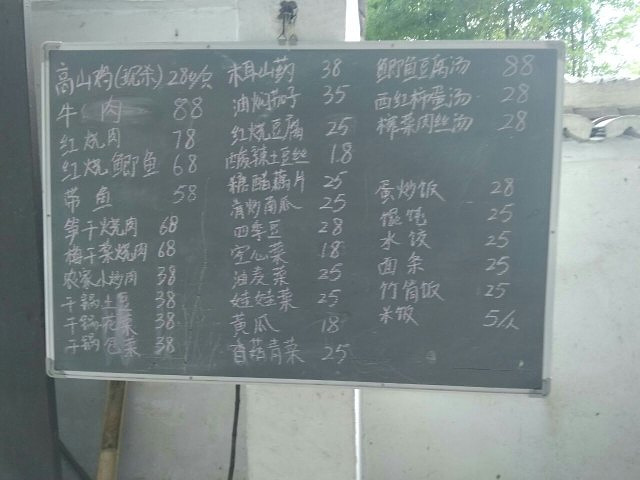 高山鸡(现杀) 288/只
牛肉 88
红烧肉 78
红烧鲫鱼 68
带鱼 58
笋干烧肉 68
梅干菜烧肉 68
农家小炒肉 38
干锅土豆 38
干锅花菜 38
干锅包菜 38
木耳山药 38
油焖茄子 35
红烧豆腐 25
酸辣土豆丝 18
糖醋藕片 25
清炒南瓜 25
四季豆 28
空心菜 18
油麦菜 25
娃娃菜 25
黄瓜 18
香菇青菜 25
鲫鱼豆腐汤 88
西红柿蛋汤 28
榨菜肉丝汤 28
蛋炒饭 28
馄饨 25
水饺 25
面条 25
竹筒饭 25
米饭 5/人